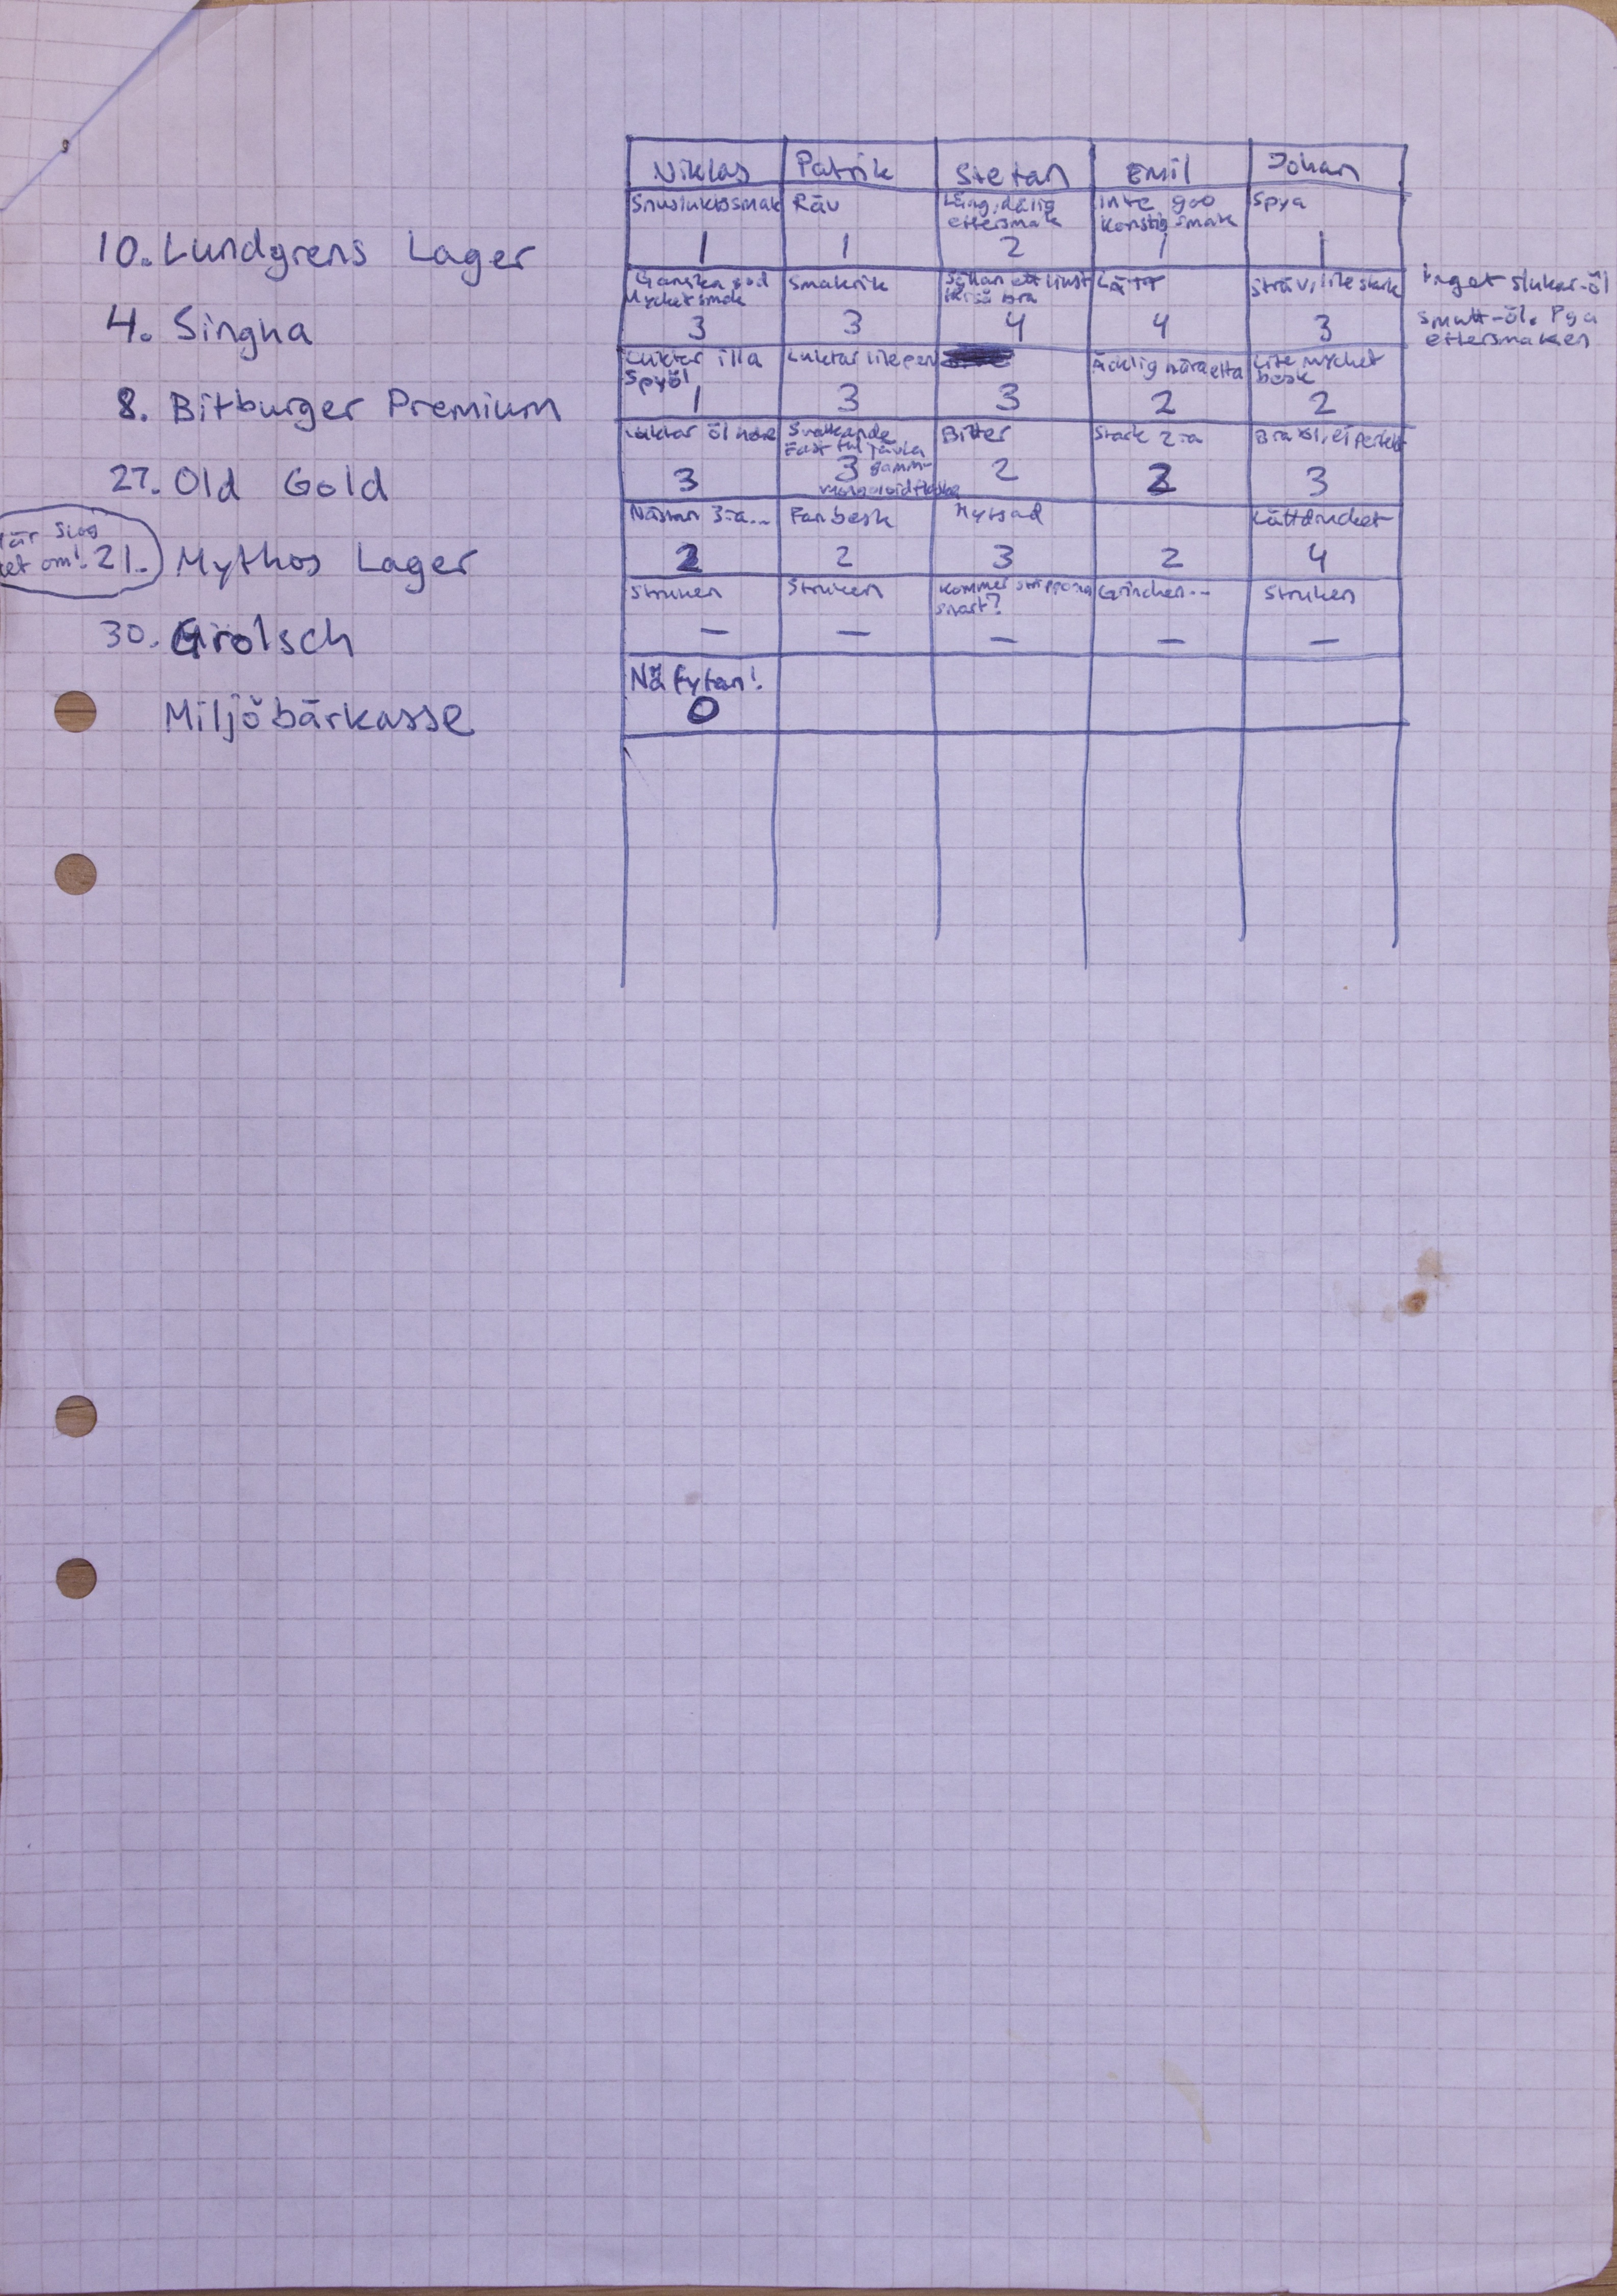 Niklas Patrik Stefan Emil Johan
Snusluktosmak Räv Lång, dålig eftersmak Inte god konstig smak Spya
10. Lundgrens Lager 1 1 2 1 1
Ganska god Mycket smak Smakrik bra Lätt Sträv, lite stark
4. Singha 3 3 4 4 3
Inget slukar-öl
Smutt-öl. Pga
eftersmaken
Luktar illa Spyöl Luktar lite Äcklig nära etta Lite mycket besk
8. Bitburger Premium 1 3 3 2 2
Luktar öl Svalkande Fast ful jävla Bitter Stark 2:a Bra öl, ej perfekt
27. Old Gold 3 3 2 2 3
Nästan 3:a... Fan besk Lättdrucket
Här slog
det om! 21. Mythos Lager 2 2 3 2 4
Struken Struken Kommer snart? Grinchen.. Struken
30. Grolsch — — — — —
Nä fytan!
Miljöbärkasse 0